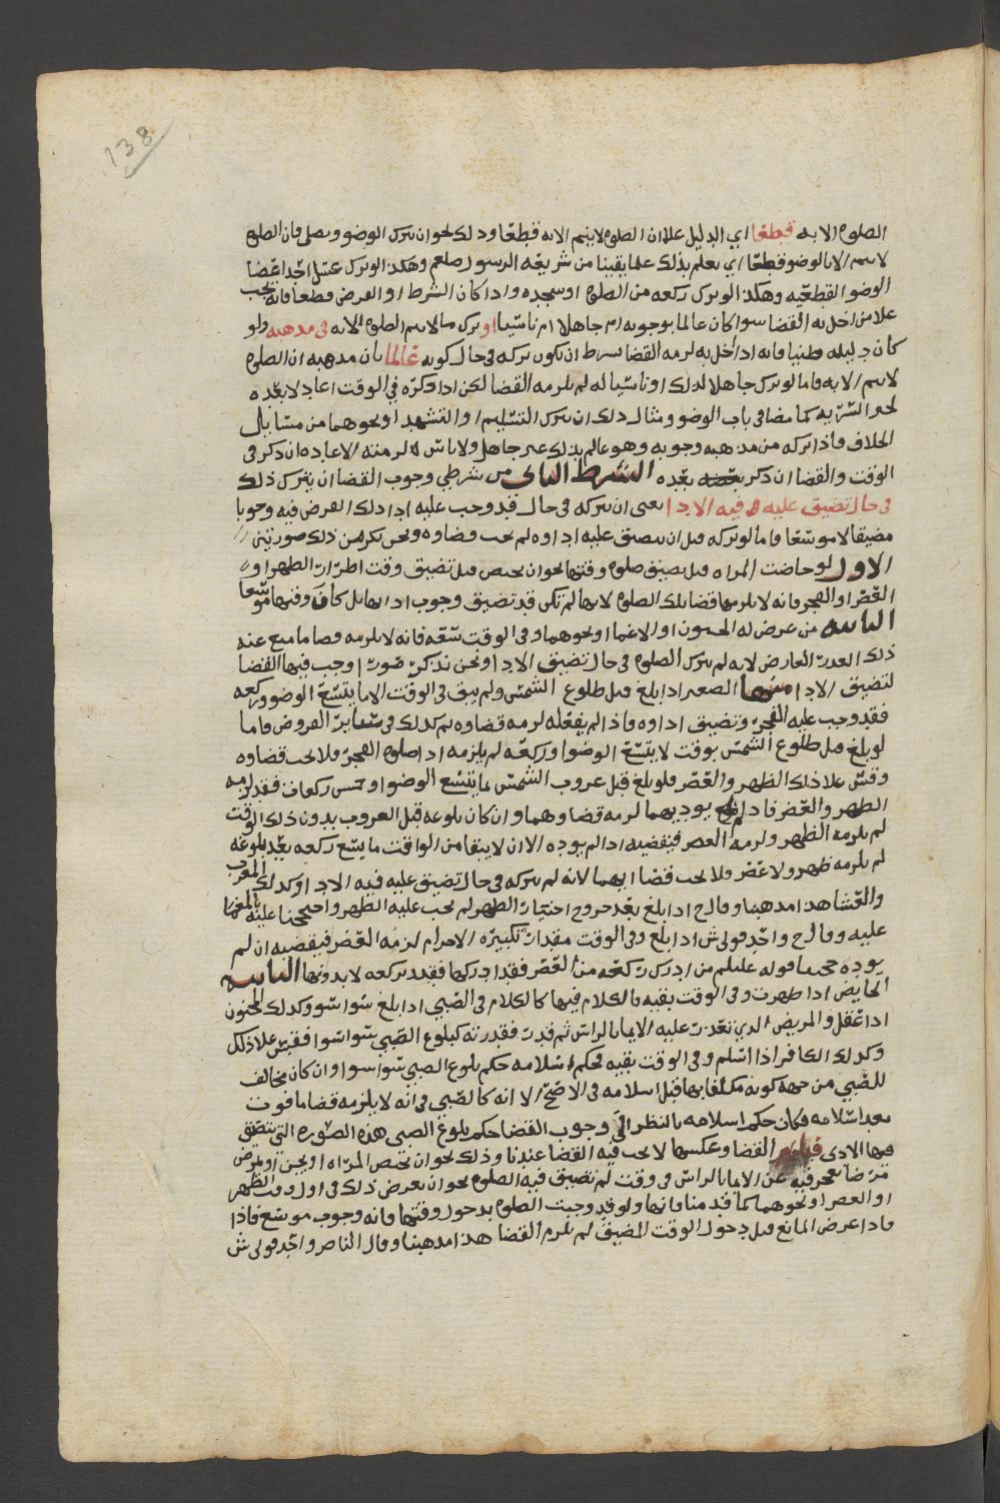 138
الصلوه الا به قطعا اي الدليل علا ان الصلوه لا يتم الا به قطعا وذلك نحو ان يترك الوضو ويصلي فان الصلوه
لا يتم الا بالوضو قطعا اي يعلم بذلك علما يقينا من شريعه الرسول صلعم وهكذا لو ترك غسل احد اعضا
الوضو القطعيه وهكذا لو ترك ركعه من الصلوه او سجده واذا كان الشرط او الفرض قطعيا فانه يجب
علا من اخل به القضا سوا كان عالما بوجوبه ام جاهلا ام ناسيا او ترك ما لا يتم الصلوه الا به في مذهبه ولو
كان دليله ظنيا فانه اذا اخل به لزمه القضا بشرط ان يكون تركه في حال كونه عالما بان مذهبه ان الصلوه
لا يتم الا به فاما لو ترك جاهلا لذلك او ناسيا له لم يلزمه القضا لكن اذا ذكره في الوقت اعاد لا بعده
كما مضا في باب الوضو ومثال ذلك ان يترك التسليم او التشهد او نحوهما من مسايل
الخلاف فاذا تركه من مذهبه وجوبه وهو عالم بذلك غير جاهل ولا ناس له لزمته الاعاده ان ذكر في
الوقت والقضا ان ذكر بعده الشرط الثاني من شرطي وجوب القضا ان يترك ذلك
في حال تضيق عليه فيه الادا يعني ان يتركه في حال قد وجب عليه ادا ذلك الفرض فيه وجوبا
مضيقا لا موسعا فاما لو تركه قبل ان يتضيق عليه اداوه لم يجب قضاوه ونحن نذكر من ذلك صورتين
الاول لو حاضت المراه قبل تضيق صلوه وقتها نحو ان يحيض قبل تضيق وقت اضطرار الظهر او
العصر او الفجر فانه لا يلزمها قضا تلك الصلوه لانها لم تكن قد تضيق وجوب ادايها بل كان وقتها موسعا
الثانيه من عرض له الجنون او الاغما او نحوهما وفي الوقت سعه فانه لا يلزمه قضا ما منع عنه
ذلك العذر العارض لانه لم يترك الصلوه في حال تضيق الادا ونحن نذكر صورا وجب فيها القضا
لتضيق الادا منها الصغير اذا بلغ قبل طلوع الشمس ولم يبق في الوقت الا ما يتسع الوضو وركعه
فقد وجب عليه الفجر وتضيق اداوه فاذا لم يفعله لزمه قضاوه ثم كذلك في ساير الفروض فاما
لو بلغ قبل طلوع الشمس بوقت لا يتسع الوضو او ركعه لم يلزمه ادا صلوه الفجر فلا يجب قضاوه
وقس علا ذلك الظهر والعصر فلو بلغ قبل غروب الشمس بما يتسع الوضو او خمس ركعات فقد لزمه
الظهر والعصر فاذا لم يوديهما لزمه قضاوهما وان كان بلوغه قبل الغروب بدون ذلك الوقت
لم يلزمه الظهر ولزمه العصر فيقضيه اذا لم يوده الا ان لا يبقا من الوقت ما يسع ركعه بعد بلوغه
لم يلزمه ظهر ولا عصر ولا يجب قضا ايهما لانه لم يتركه في حال تضيق عليه فيه الادا وكذلك المغرب
والعشا هذا مذهبنا وقال ح اذا بلغ بعد خروج اختيار الظهر لم يجب عليه الظهر واحتججنا عليه
عليه وقال ح واحد قولي ش اذا بلغ وفي الوقت مقدار تكبيره الاحرام لزمه العصر فيقضيه ان لم
يوده حجتنا قوله عليلم من ادرك ركعه من العصر فقد ادركها فقيد بركعه لا بدونها الثانيه
الحايض اذا طهرت وفي الوقت بقيه فالكلام فيها كالكلام في الصبي اذا بلغ سوا سوا وكذلك المجنون
اذا عقل والمريض الذي تعذر عليه الايما بالراس ثم قدر فقدرته كبلوغ الصبي سوا سوا فقس علا ذلك
وكذلك الكافر اذا اسلم وفي الوقت بقيه فحكم اسلامه حكم بلوغ الصبي سوا سوا وان كان مخالف
للصبي من جهه كونه مكلفا بها قبل اسلامه في الاصح الا انه كالصبي في انه لا يلزمه قضا ما فوت
بعد اسلامه فكان حكم اسلامه بالنظر الى وجوب القضا حكم بلوغ الصبي هذه الصوره التي يتضيق
فيها الادى فيلزم القضا وعكسها لا يجب فيه القضا عندنا وذلك نحو ان تحيض المراه او يجن او يمرض
مرضا يعجز فيه عن الايما بالراس في وقت لم تضيق فيه الصلوه نحو ان يعرض ذلك في اول وقت الظهر
او العصر او نحوهما كما قدمنا فانها ولو قد وجبت الصلوه بدخول وقتها فانه وجوب موسع فاذا
فاذا عرض المانع قبل دخول الوقت المضيق لم يلزم القضا هذا مذهبنا وقال الناصر واحد قولي ش